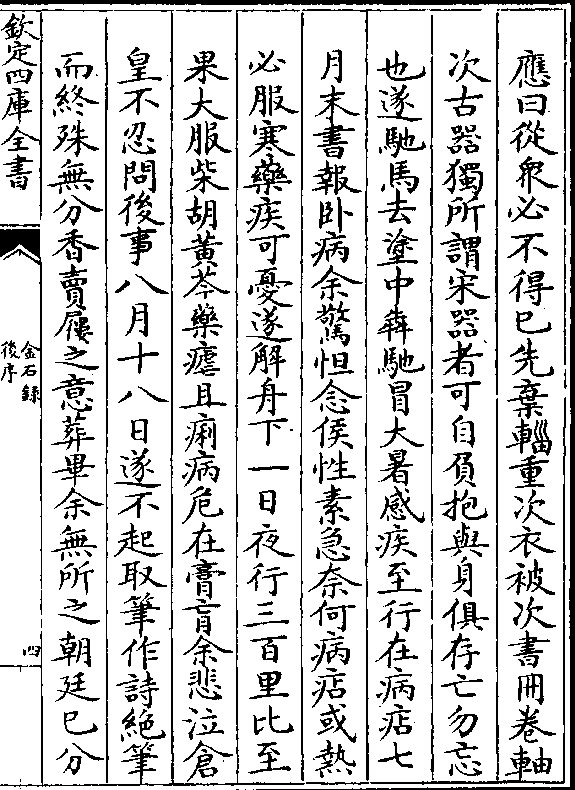 應曰從衆必不得已先棄輜重次衣被次書冊卷軸
次古器獨所謂宋器者可自負抱與身俱存亡勿忘
也遂馳馬去塗中犇馳冒大暑感疾至行在病痁七
月末書報卧病余驚怛念侯性素急奈何病痁或熱
必服寒藥疾可憂遂解舟下一日夜行三百里比至
果大服柴胡黃芩藥瘧且痢病危在膏肓余悲泣倉
皇不忍問後事八月十八日遂不起取筆作詩絕筆
而終殊無分香賣屨之意葬畢余無所之朝廷已分
欽定四庫全書
金石錄
後序
四